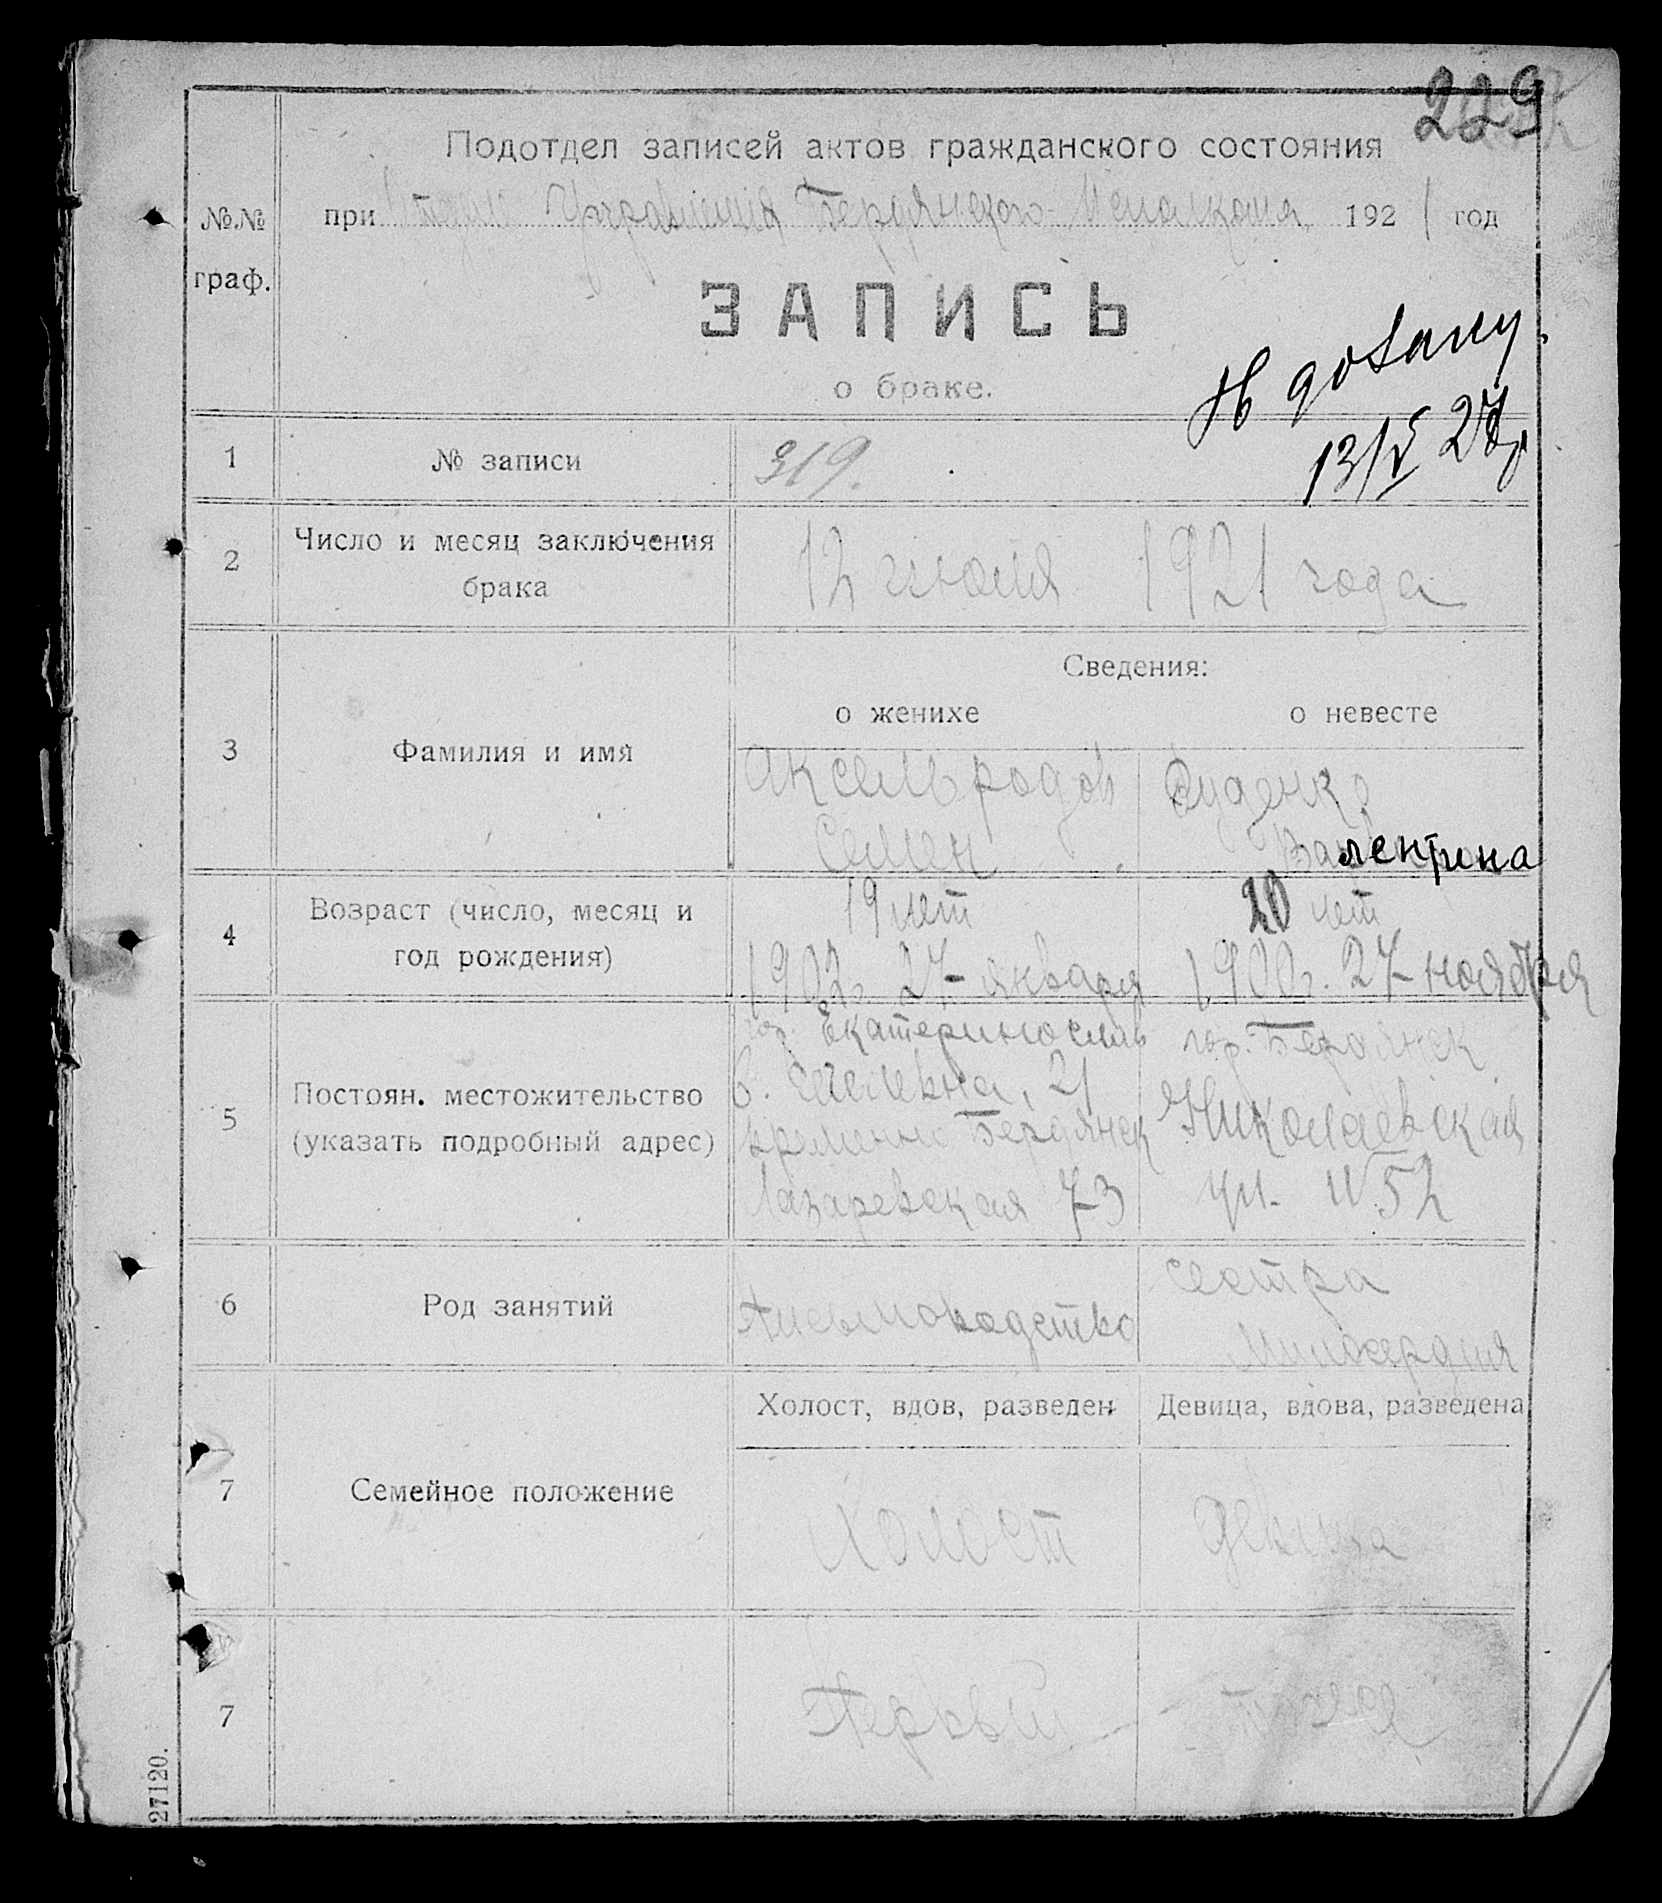 229
Подотдел записей актов гражданского состояния
№№ граф.
при Отделе Управления Бердянского Исполкома 1921 год
ЗАПИСЬ
о браке.
13/V 27
1 № записи 319.
2 Число и месяц заключения брака 12 июля 1921 года
Сведения:
о женихе о невесте
3 Фамилия и имя
Аксельродов Руденко
Семен Валентина
4 Возраст (число, месяц и год рождения)
19 лет 20 лет
1902г. 27 января 1900г. 27 ноября
5 Постоян. местожительство (указать подробный адрес)
гор. Екатеринослав гор. Бердянск
21 Николаевская
временно Бердянск ул. № 52
Лазаревская 73
6 Род занятий
Письмоводство сестра
милосердия
Холост, вдов, разведен Девица, вдова, разведена
7 Семейное положение
холост девица
7
Первый тоже
27120.